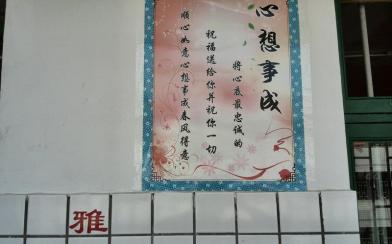 心想事成
将心底最忠诚的
祝福送给你并祝你一切
顺心如意心想事成春风得意
雅